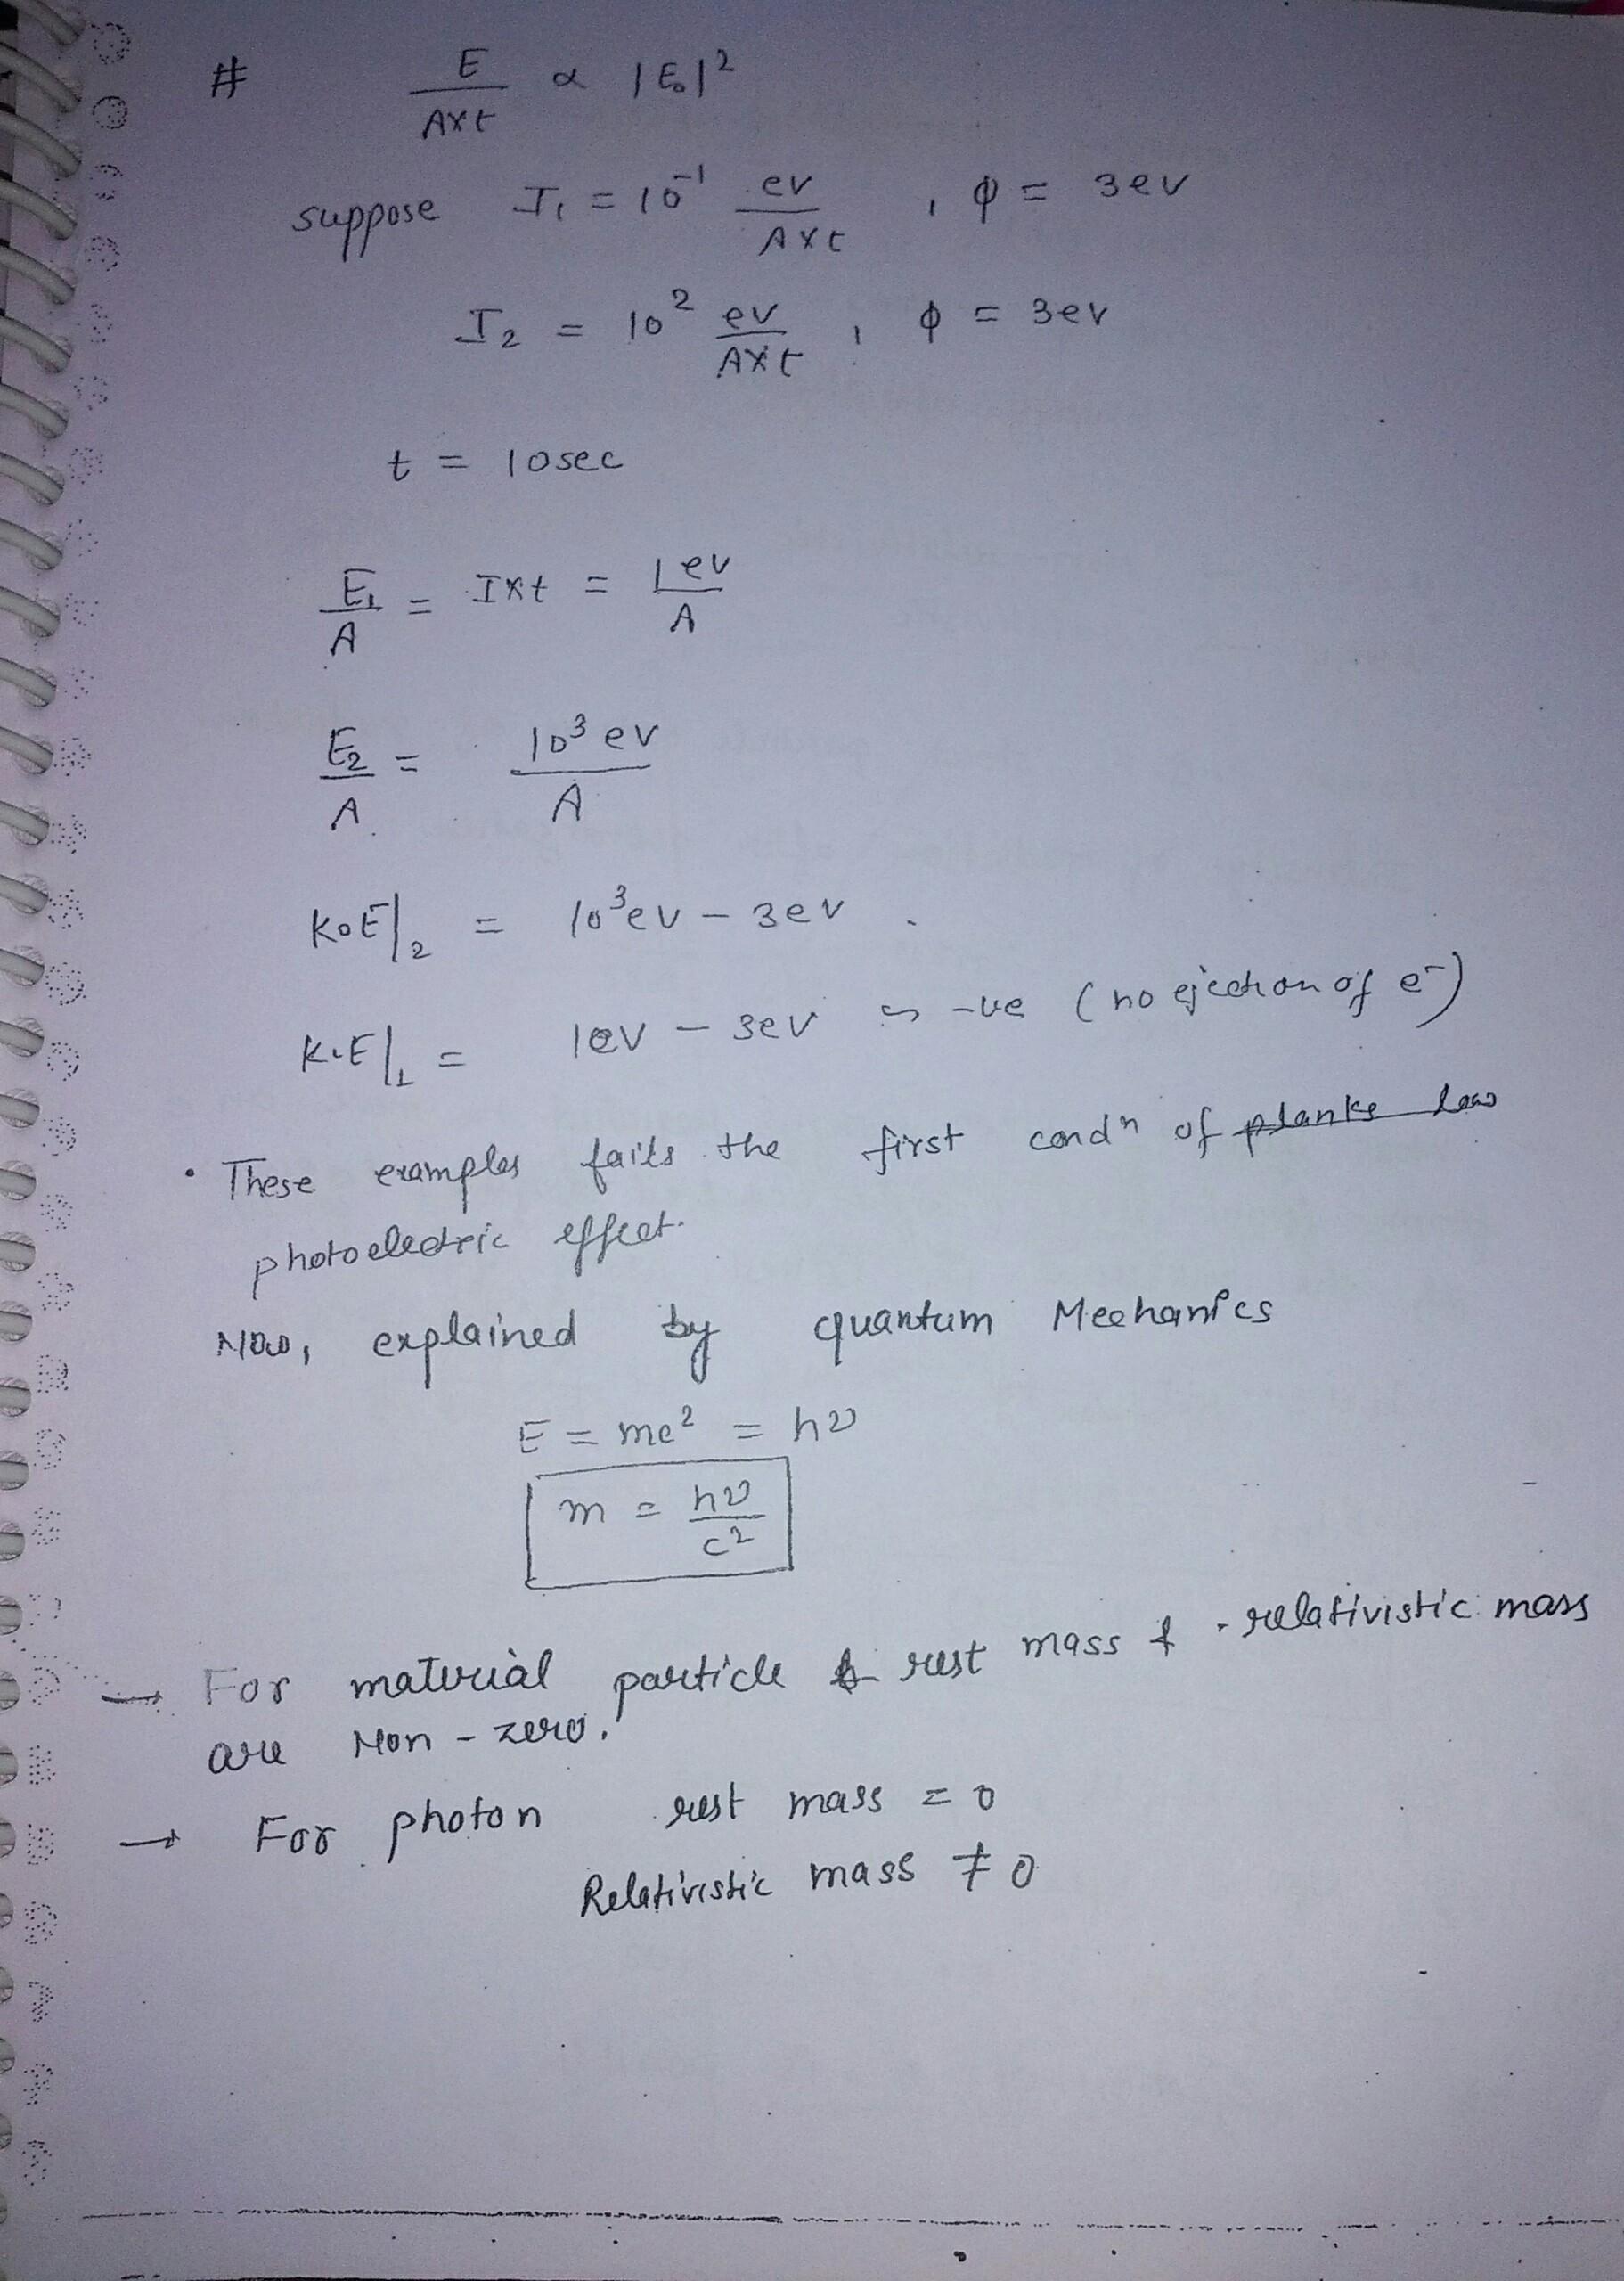 # E/(A×t) ∝ |E₀|²
suppose I₁ = 10⁻¹ ev/(A×t) , φ = 3ev
I₂ = 10² ev/(A×t) , φ = 3ev
t = 10sec
E₁/A = I×t = 1ev/A
E₂/A = 10³ev/A
K.E|₂ = 10³ev - 3ev .
K.E|₁ = 1ev - 3ev ↪ -ve (no ejection of e⁻)
• These examples fails the first condⁿ of planks law
photoelectric effect.
Now, explained by quantum Mechanics
E = mc² = hν
m = hν/c²
→ For material particle rest mass & relativistic mass
are Non-zero.
→ For photon rest mass = 0
Relativistic mass ≠ 0